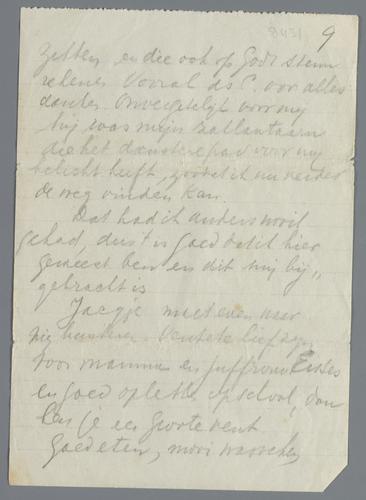 8431 9
zitten en die ook op Gods steun
rekenen vooral ds E. voor alles
danken. Onvergetelijk voor mij
hij was mijn lantaarn
die het donstere pad voor mij
belicht heeft, zoodat ik nu verder
de weg vinden kan.
Dat had ik anders nooit
gehad, dus 't is goed dat ik hier
geweest ben en dit mij bij„
gebracht is
Jaapje moet even naar
mij luisteren. Denk je lief zijn
voor mamma en juffrouw
en goed opletten op school, dan
ben je een groote vent
goed eten, mooi wasschen